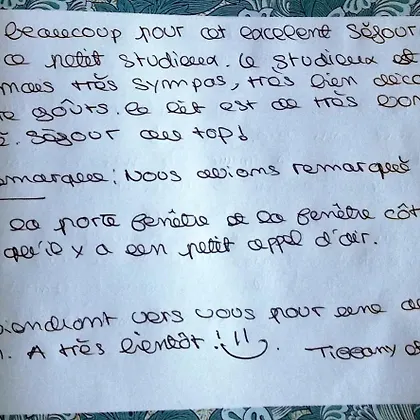 Beaucoup pour cet excelent séjour
ce petit studieux. Le studieux et
mais très sympas, très bien déco
goûts. Le lit est de très bon
. Séjour au top!
emarque: Nous avions remarqué
la porte fenêtre et la fenêtre côt
qu'il y a un petit appel d'air.
iendront vers vous pour une a
. A très bientôt !!! . Tiffany e